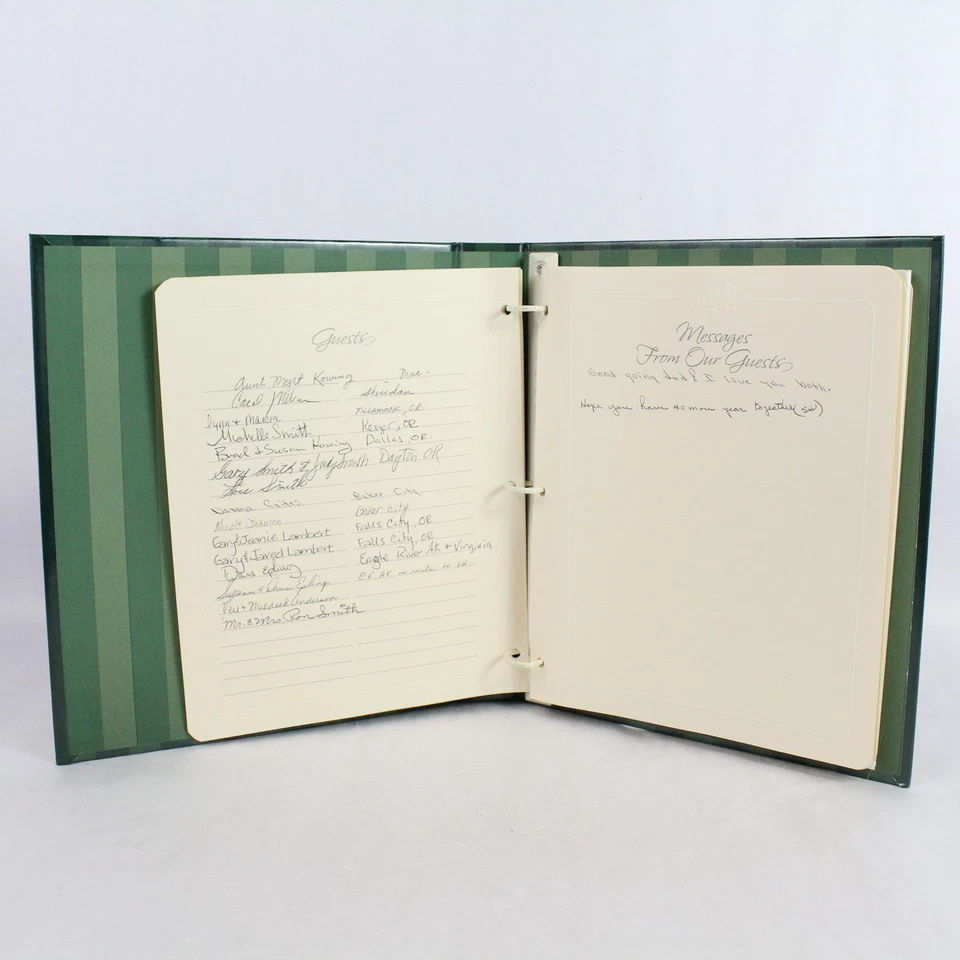 Guests
Aunt Myrt Kowing Mac.
Carol Sheridan
Lynn & Marcia Tillamook, OR
Michelle Smith Keizer, OR
Brad & Susan Kowing Dallas, OR
Gary Smith & Judy Smith Dayton OR
Lois Smith
Donna Crites Baker City
Nicole Johnson Baker City
Gary & Jeanie Lambert Falls City, OR
Gary & Jared Lambert Falls City, OR
Doris Epling Eagle River AK & Virginia
Suzanne & Epling ER AK to VA
& Mildred Anderson
Mr. & Mrs. Ron Smith
Messages
From Our Guests
Good going dad & I love you both.
Hope you have more year together